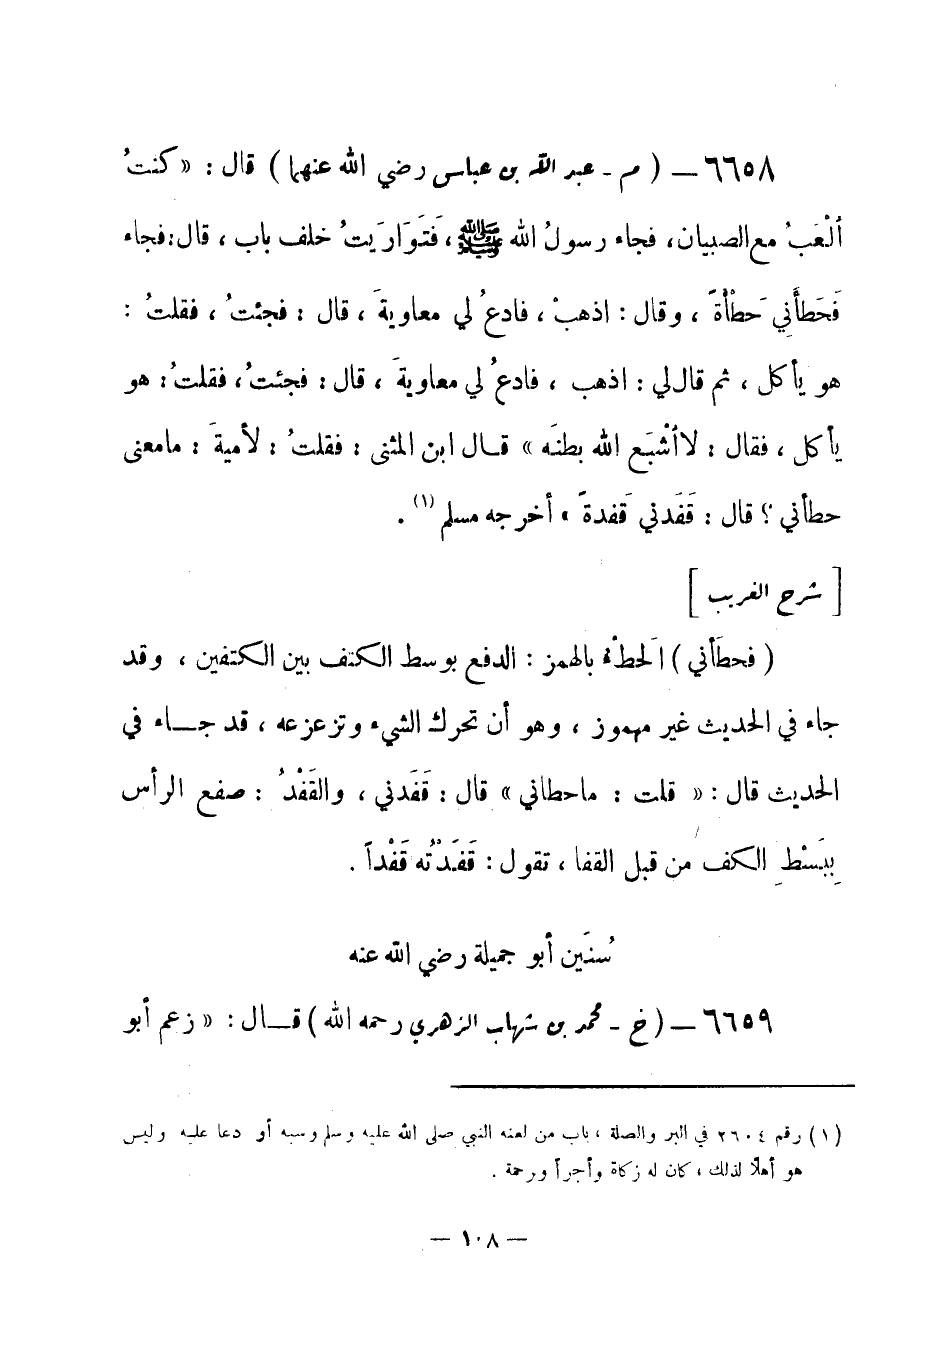 ٦٦٥٨ – ( م - عبد الله بن عباس رضي الله عنهما ) قال : « كنتُ
ألْعَبُ مع الصبيان ، فجاء رسولُ الله ﷺ ، فَتَوَارَيتُ خلف باب ، قال : فجاء
فَحَطَأَنِي حَطْأَةً ، وقال : اذهبْ ، فادعُ لي معاويةَ ، قال : فجئتُ ، فقلتُ :
هو يأكل ، ثم قال لي : اذهب ، فادعُ لي معاويةَ ، قال : فجئتُ ، فقلتُ : هو
يأكل ، فقال : لا أشْبَعَ الله بطنَه » قال ابن المثنى : فقلتُ : لأميةَ : ما معنى
حطأني ؟ قال : قَفَدني قَفدةً » أخرجه مسلم (١) .
[ شرح الغريب ]
( فحطَأني ) الَحطْءُ بالهمز : الدفع بوسط الكتف بين الكتفين ، وقد
جاء في الحديث غير مهموز ، وهو أن تحرك الشيء وتزعزعه ، قد جاء في
الحديث قال : « قلت : ما حطاني » قال : قَفَدني ، والقَفْدُ : صفع الرأس
بِبَسْطِ الكف من قبل القفا ، تقول : قَفَدْتُه قَفْداً .
سُنَين أبو جميلة رضي الله عنه
٦٦٥٩ – ( خ - محمد بن شهاب الزهري رحمه الله ) قال : « زعم أبو
(١) رقم ٢٦٠٤ في البر والصلة ، باب من لعنه النبي صلى الله عليه وسلم وسبه أو دعا عليه وليس
هو أهلاً لذلك ، كان له زكاة وأجراً ورحمة .
— ١٠٨ —